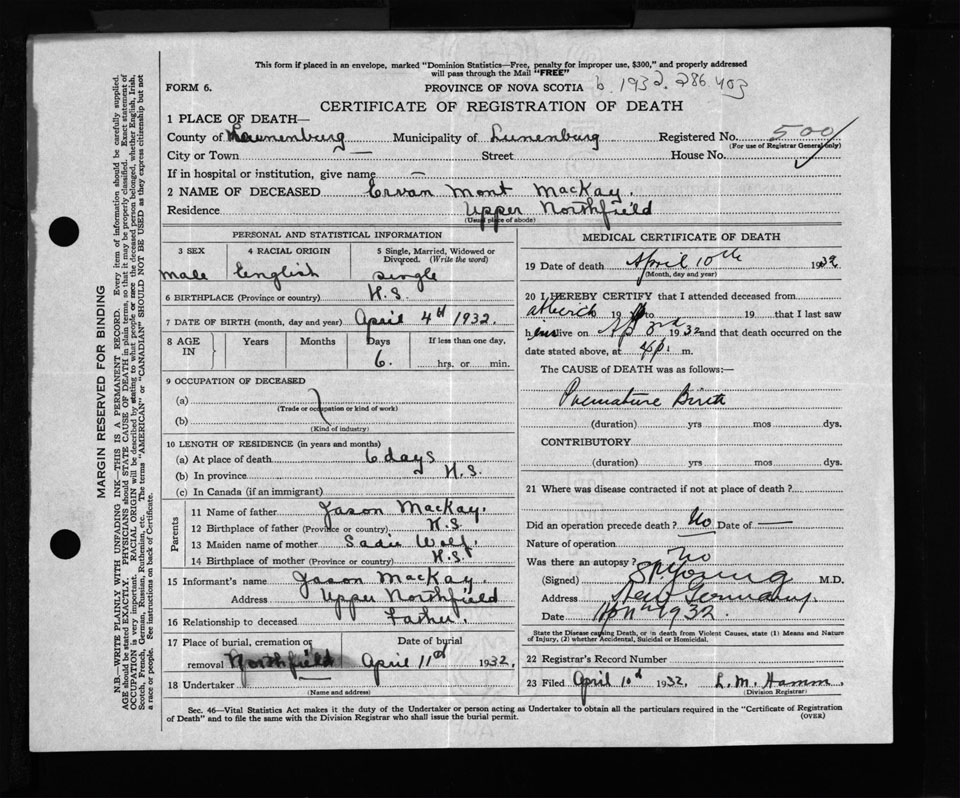 This form if placed in an envelope, marked "Dominion Statistics—Free, penalty for improper use, $300," and properly addressed
will pass through the Mail "FREE"
FORM 6. PROVINCE OF NOVA SCOTIA b. 1932. 286 403
CERTIFICATE OF REGISTRATION OF DEATH
1 PLACE OF DEATH—
County of Lunenburg Municipality of Lunenburg Registered No. 500
(For use of Registrar General only)
City or Town Street House No.
If in hospital or institution, give name —
2 NAME OF DECEASED Ervan Mont MacKay.
Residence Upper Northfield
(Usual place of abode)
PERSONAL AND STATISTICAL INFORMATION
3 SEX 4 RACIAL ORIGIN 5 Single, Married, Widowed or
Divorced. (Write the word)
male English single
6 BIRTHPLACE (Province or country) N.S.
7 DATE OF BIRTH (month, day and year) April 4th 1932.
8 AGE IN Years Months Days If less than one day,
6. hrs. or min.
9 OCCUPATION OF DECEASED
(a)
(Trade or occupation or kind of work)
(b)
(Kind of industry)
10 LENGTH OF RESIDENCE (in years and months)
(a) At place of death 6 days
(b) In province N.S.
(c) In Canada (if an immigrant)
Parents
11 Name of father Jason MacKay.
12 Birthplace of father (Province or country) N.S.
13 Maiden name of mother Sadie Wolf.
14 Birthplace of mother (Province or country) N.S.
15 Informant's name Jason MacKay.
Address Upper Northfield
16 Relationship to deceased Father.
17 Place of burial, cremation or Date of burial
removal Northfield April 11th 1932.
18 Undertaker
(Name and address)
MEDICAL CERTIFICATE OF DEATH
19 Date of death April 10th 1932
(Month, day and year)
20 I HEREBY CERTIFY that I attended deceased from
at birth 19 to 19 that I last saw
him alive on 1932 and that death occurred on the
date stated above, at m.
The CAUSE OF DEATH was as follows:—
Premature Birth
(duration) yrs mos dys.
CONTRIBUTORY
(duration) yrs mos dys.
21 Where was disease contracted if not at place of death?
Did an operation precede death? No Date of —
Nature of operation
Was there an autopsy? No
(Signed) Young M.D.
Address New Germany
Date 1932.
State the Disease causing Death, or in death from Violent Causes, state (1) Means and Nature
of Injury, (2) whether Accidental, Suicidal or Homicidal.
22 Registrar's Record Number
23 Filed April 10th 1932. L. M. Hamm.
(Division Registrar)
Sec. 46—Vital Statistics Act makes it the duty of the Undertaker or person acting as Undertaker to obtain all the particulars required in the "Certificate of Registration
of Death" and to file the same with the Division Registrar who shall issue the burial permit. (OVER)
MARGIN RESERVED FOR BINDING
N.B.—WRITE PLAINLY WITH UNFADING INK—THIS IS A PERMANENT RECORD. Every item of information should be carefully supplied.
AGE should be stated EXACTLY. PHYSICIANS should STATE CAUSE OF DEATH in plain terms, so that it may be properly classified. Exact statement of
OCCUPATION is very important. RACIAL ORIGIN will be described by stating to what people or race the deceased person belonged, whether English, Irish,
Scotch, French, German, Russian, Ruthenian, etc. The terms "AMERICAN" or "CANADIAN" SHOULD NOT BE USED as they express citizenship but not
a race or people. See instructions on back of Certificate.